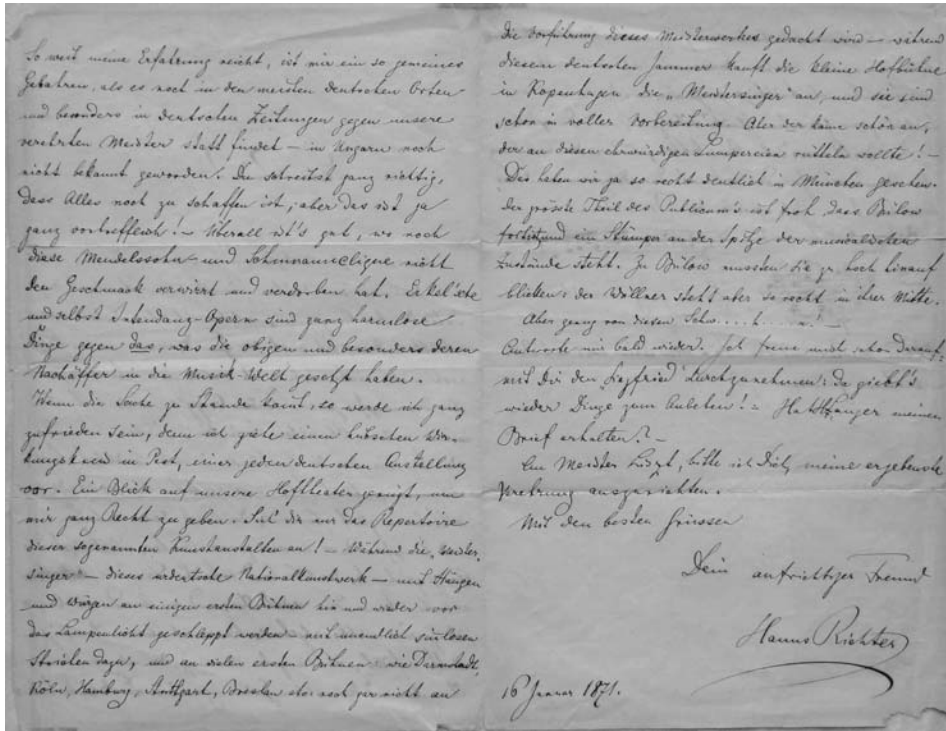 So weit meine Erfahrung reicht, ist mir ein so gemeines
Gebahren, als es noch in den meisten deutschen Orten
und besonders in deutschen Zeitungen gegen unsere
verehrten Meister statt findet – in Ungarn noch
nicht bekannt geworden. Du schreibst ganz richtig,
dass Alles noch zu schaffen ist, aber das ist ja
ganz vortrefflich! – Überall ist's gut, wo noch
diese Mendelssohn- und Schumannclique nicht
den Geschmack verwirrt und verdorben hat. Erkel'sche
und selbst Intendanz-Opern sind ganz harmlose
Dinge gegen das, was die obigen und besonders deren
Nachäffer in die Musik-Welt gesetzt haben.
Wenn die Sache zu Stande kommt, so werde ich ganz
zufrieden sein, denn ich ziehe einen hübschen Wir-
kungskreis in Pest, einer jeden deutschen Anstellung
vor. Ein Blick auf unsere Hoftheater genügt, um
mir ganz Recht zu geben. Sieh' dir nur das Repertoire
dieser sogenannten Kunstanstalten an! – Während die „Meister
singer" – dieses urdeutsche Nationalkunstwerk – mit Hängen
und Würgen an einigen ersten Bühnen hin und wieder vor
das Lampenlicht geschleppt werden – mit unendlich sinnlosen
Strichen dazu, und an vielen ersten Bühnen wie Darmstadt,
Köln, Hamburg, Stuttgart, Breslau etc. noch gar nicht an
die Vorführung dieses Meisterwerkes gedacht wird – während
diesem deutschen Jammer kauft die kleine Hofbühne
in Kopenhagen die „Meistersinger" an, und sie sind
schon in voller Vorbereitung. Aber der käme schön an,
der an diesen ehrwürdigen Lumpereien rütteln wollte! –
Das haben wir ja so recht deutlich in München gesehen.
der grösste Theil des Publicum's ist froh dass Bülow
fort ist und ein Stümper an der Spitze der musikalischen
Zustände steht. Zu Bülow mussten sie zu hoch hinauf
blicken: der Wüllner steht aber so recht in ihrer Mitte.
Aber genug von diesen Schw....h....n! –
Antworte mir bald wieder. Ich freue mich schon darauf,
mit Dir den Siegfried durchzunehmen: da giebt's
wieder Dinge zum Anbeten! – Hat meinen
Brief erhalten? –
An Meister Liszt, bitte ich Dich, meine ergebenste
Verehrung auszurichten.
Mit den besten Grüssen
Dein aufrichtiger Freund
Hanns Richter
16 Januar 1871.